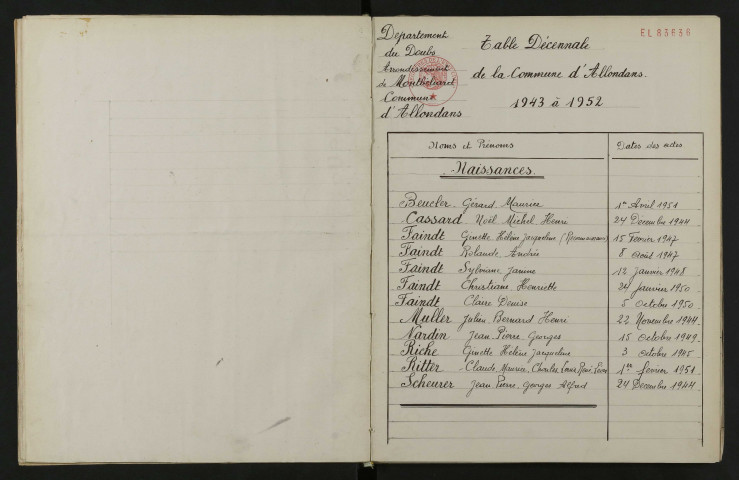 Département
du Doubs
Arrondissement
de Montbéliard
Commune
d'Allondans
EL 83636
Table Décennale
de la Commune d'Allondans.
1943 à 1952
Noms et Prénoms Dates des actes
Naissances.
Beucler Gérard Maurice 1er Avril 1951
Cassard Noël Michel Henri 24 Decembre 1944
Faindt Ginette Hélène Jacqueline (Reconnaissance) 15 Fevrier 1947
Faindt Rolande Andrée 8 Août 1947
Faindt Sylviane Janine 12 Janvier 1948
Faindt Christiane Henriette 24 Janvier 1950
Faindt Claire Denise 5 Octobre 1950
Muller Julien Bernard Henri 22 Novembre 1944
Nardin Jean Pierre Georges 15 Octobre 1949
Riche Ginette Hélène Jacqueline 3 Octobre 1945
Ritter Claude, Maurice, Charles René 1er Fevrier 1951
Scheurer Jean Pierre Georges Alfred 24 Decembre 1944